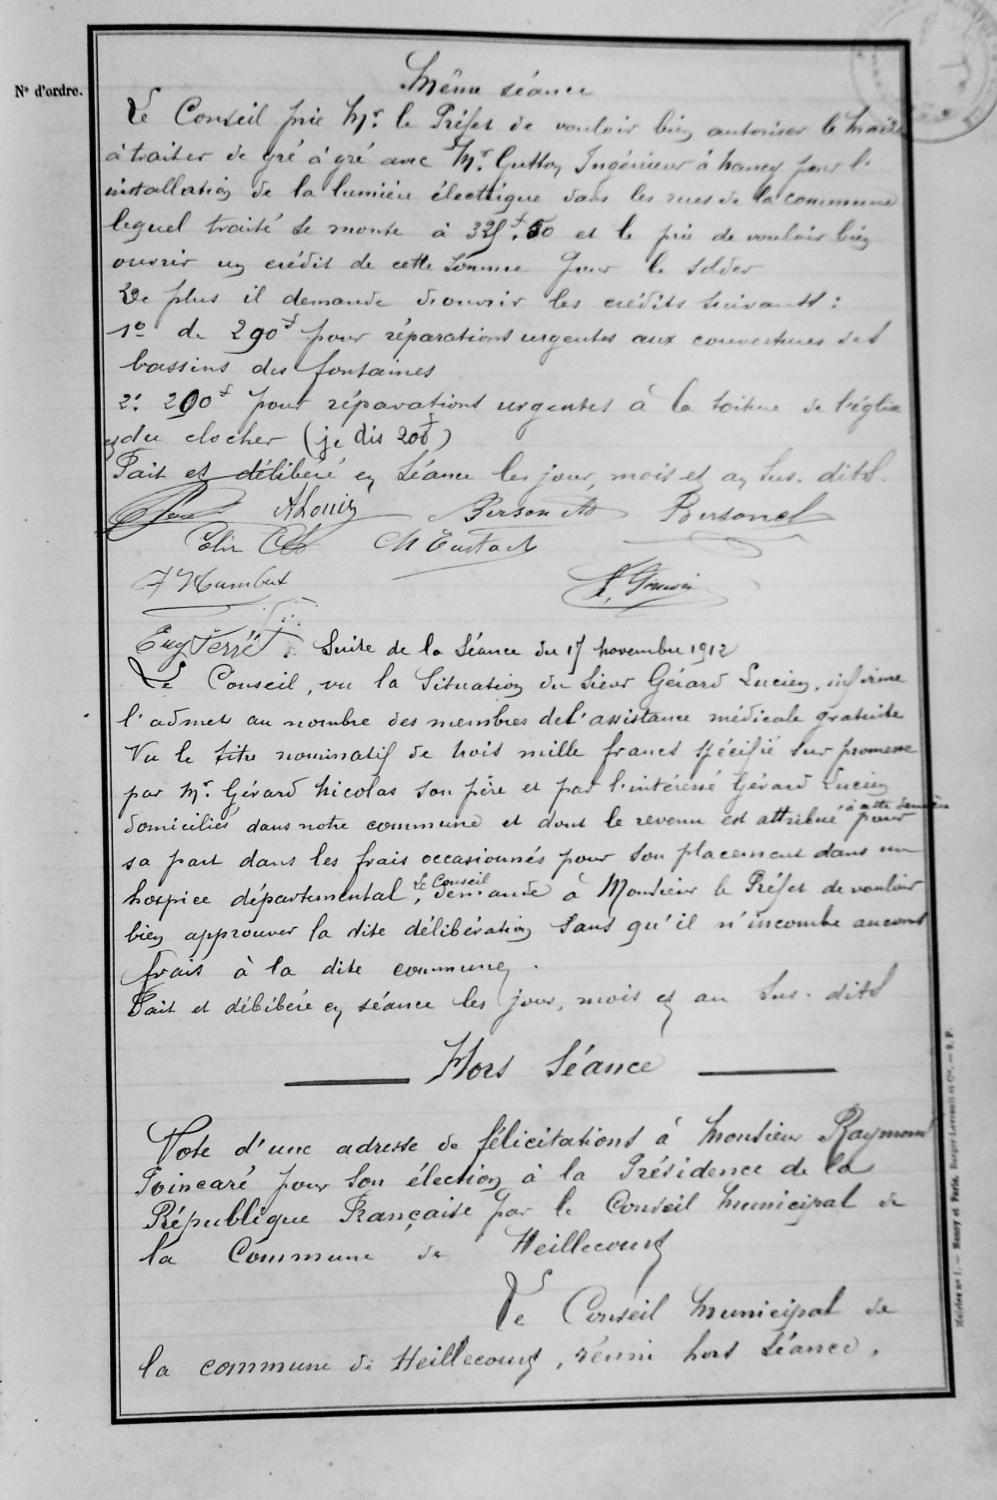 Nº d'ordre.
Même séance
Le Conseil prie Mr. le Préfet de vouloir bien autoriser le Maire
à traiter de gré à gré avec Mr. Gutton Ingénieur à Nancy pour l'
installation de la lumière électrique dans les rues de la commune
lequel traité se monte à et le prie de vouloir bien
ouvrir un crédit de cette somme pour le solder
De plus il demande d'ouvrir les crédits suivants :
1º de 290f pour réparations urgentes aux couvertures des
bassins des fontaines
2º 200f pour réparations urgentes à la toiture de l'église
et du clocher (je dis 200f)
Fait et délibéré en séance les jour, mois et an sus-dits.
ALouis Bersonel
Ch Eustach
F Humbert
Eug Ferré. Suite de la Séance du 17 novembre 1912
Le Conseil, vu la Situation du Sieur Gérard Lucien, infirme
l'admet au nombre des membres de l'assistance médicale gratuite
Vu le titre nominatif de trois mille francs spécifié sur promesse
par Mr. Gérard Nicolas son père et par l'intéressé Gérard Lucien
domiciliés dans notre commune et dont le revenu est attribué à cette dernière pour
sa part dans les frais occasionnés pour son placement dans un
hospice départemental, Le Conseil demande à Monsieur le Préfet de vouloir
bien approuver la dite délibération sans qu'il n'incombe aucuns
frais à la dite commune.
Fait et débibéré en séance les jour, mois et an sus-dits
Hors Séance
Vote d'une adresse de félicitations à Monsieur Raymond
Poincaré pour son élection à la Présidence de la
République Française par le Conseil Municipal de
la Commune de Heillecourt
Le Conseil Municipal de
la commune de Heillecourt, réuni hors séance,
Mairies nº 1. — Nancy et Paris, Berger-Levrault et Cie. — S. P.